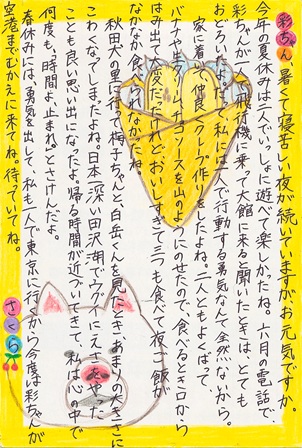 彩ちゃん、暑くて寝苦しい夜が続いていますがお元気ですか。
今年の夏休みは二人でいっしょに遊べて楽しかったね。六月の電話で、
彩ちゃんが一人で飛行機に乗って大館に来ると聞いたときは、とても
おどろいたよ。だって、私には一人で行動する勇気なんて全然ないから。
家に着いて、仲良くクレープ作りをしたよね。二人ともよくばって
バナナや生クリーム、チョコソースを山のようにのせたので、食べるとき口から
はみ出て大変だったけれど、おいしすぎて三つも食べて夜ご飯が
なかなか食べられなかったね。
秋田犬の里に行って梅子ちゃんと白岳さんを見たとき、あまりの大きさに
こわくなってしまったよね。日本一深い田沢湖でウグイにえさをやった
ことも良い思い出になったよ。帰る時間が近づいてきて、私は心の中で
何度も、時間よ止まれとさけんだよ。
春休みには、勇気を出して、私も一人で東京に行くから今度は彩ちゃんが
空港までむかえに来てね。待っていてね。
さくら